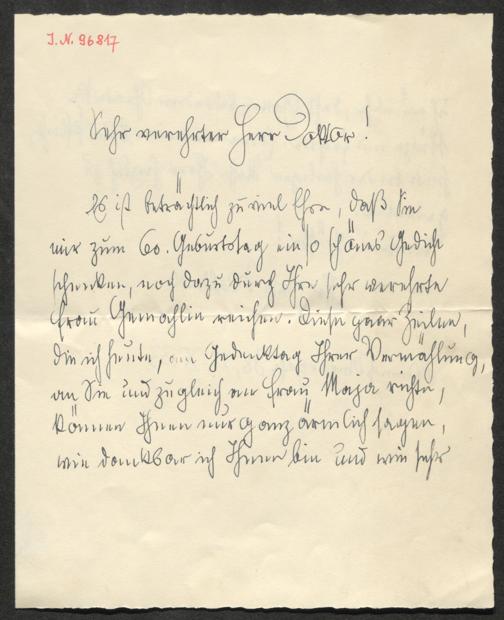 J.N. 96817
Sehr verehrter Herr Doktor!
Es ist beträchtlich zu viel Ehre, daß Sie
mir zum 60. Geburtstag ein so schönes Gedicht
schenken, noch dazu durch Ihre sehr verehrte
Frau Gemahlin reichen. Diese paar Zeilen,
die ich heute, am Gedenktag Ihrer Vermählung,
an Sie und zugleich an Frau Maja richte,
können Ihnen nur ganz ärmlich sagen,
wie dankbar ich Ihnen bin und wie sehr